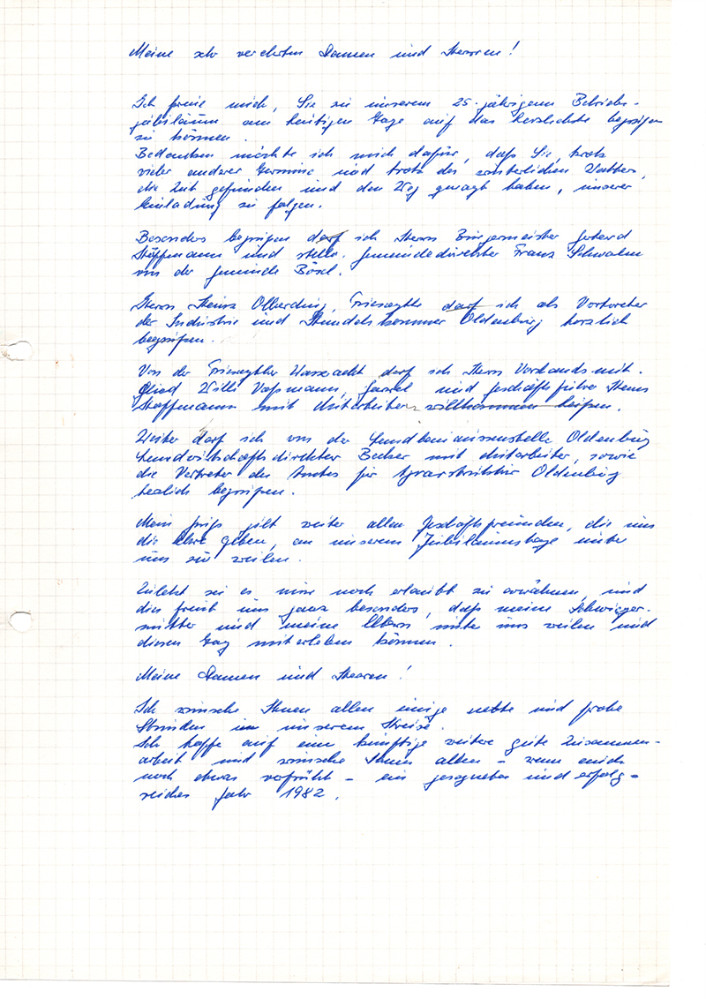 Meine sehr verehrten Damen und Herren!
Ich freue mich, Sie zu unserem 25-jährigem Betriebs-
jubiläum am heutigen Tage auf das herzlichste begrüßen
zu können.
Bedanken möchte ich mich dafür, daß Sie, trotz
vieler anderer Termine und trotz des winterlichen Wetters,
die Zeit gefunden und den Weg gewagt haben, unserer
Einladung zu folgen.
Besonders begrüßen darf ich Herrn Bürgermeister
und stellv. Gemeindedirektor Franz
von der Gemeinde Bösel.
Herrn Heinz Olberding, Friesoythe darf ich als Vertreter
der Industrie und Handelskammer Oldenburg herzlich
begrüßen.
Von der Friesoyther Wasseracht darf ich Herrn Vorstandsmit-
glied Willi und Geschäftsführer Herrn
mit Mitarbeiter willkommen heißen.
Weiter darf ich von der Oldenburg
Landwirtschaftsdirektor Becker mit Mitarbeiter, sowie
die Vertreter des Amtes für Agrarstruktur Oldenburg
herzlich begrüßen.
Mein Gruß gilt weiter allen Geschäftsfreunden, die uns
die Ehre geben, an unserem Jubiläumstage unter
uns zu weilen.
Zuletzt sei es mir noch erlaubt zu erwähnen, und
dies freut uns ganz besonders, daß meine Schwieger-
mutter und meine Eltern unter uns weilen und
diesen Tag miterleben können.
Meine Damen und Herren!
Ich wünsche Ihnen allen einige nette und frohe
Stunden in unserem Kreise.
Ich hoffe auf eine künftige weitere gute Zusammen-
arbeit und wünsche Ihnen allen – wenn auch
noch etwas verfrüht – ein gesegnetes und erfolg-
reiches Jahr 1982.